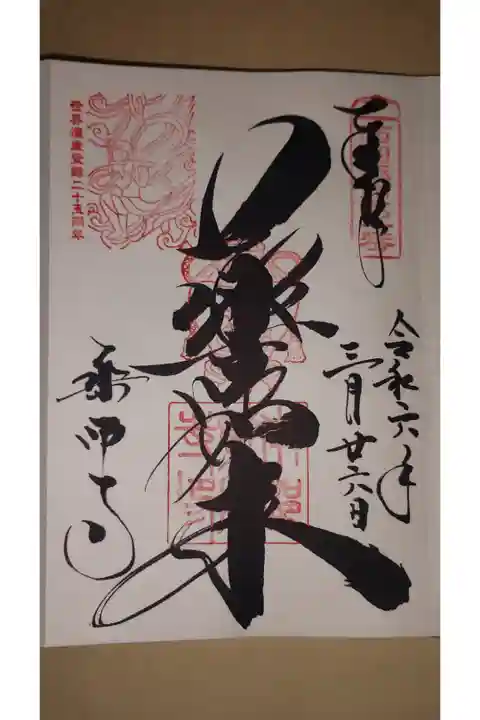 奉拝
令和六年
三月廿六日
薬師如来
薬師寺
世界遺産登録二十五周年